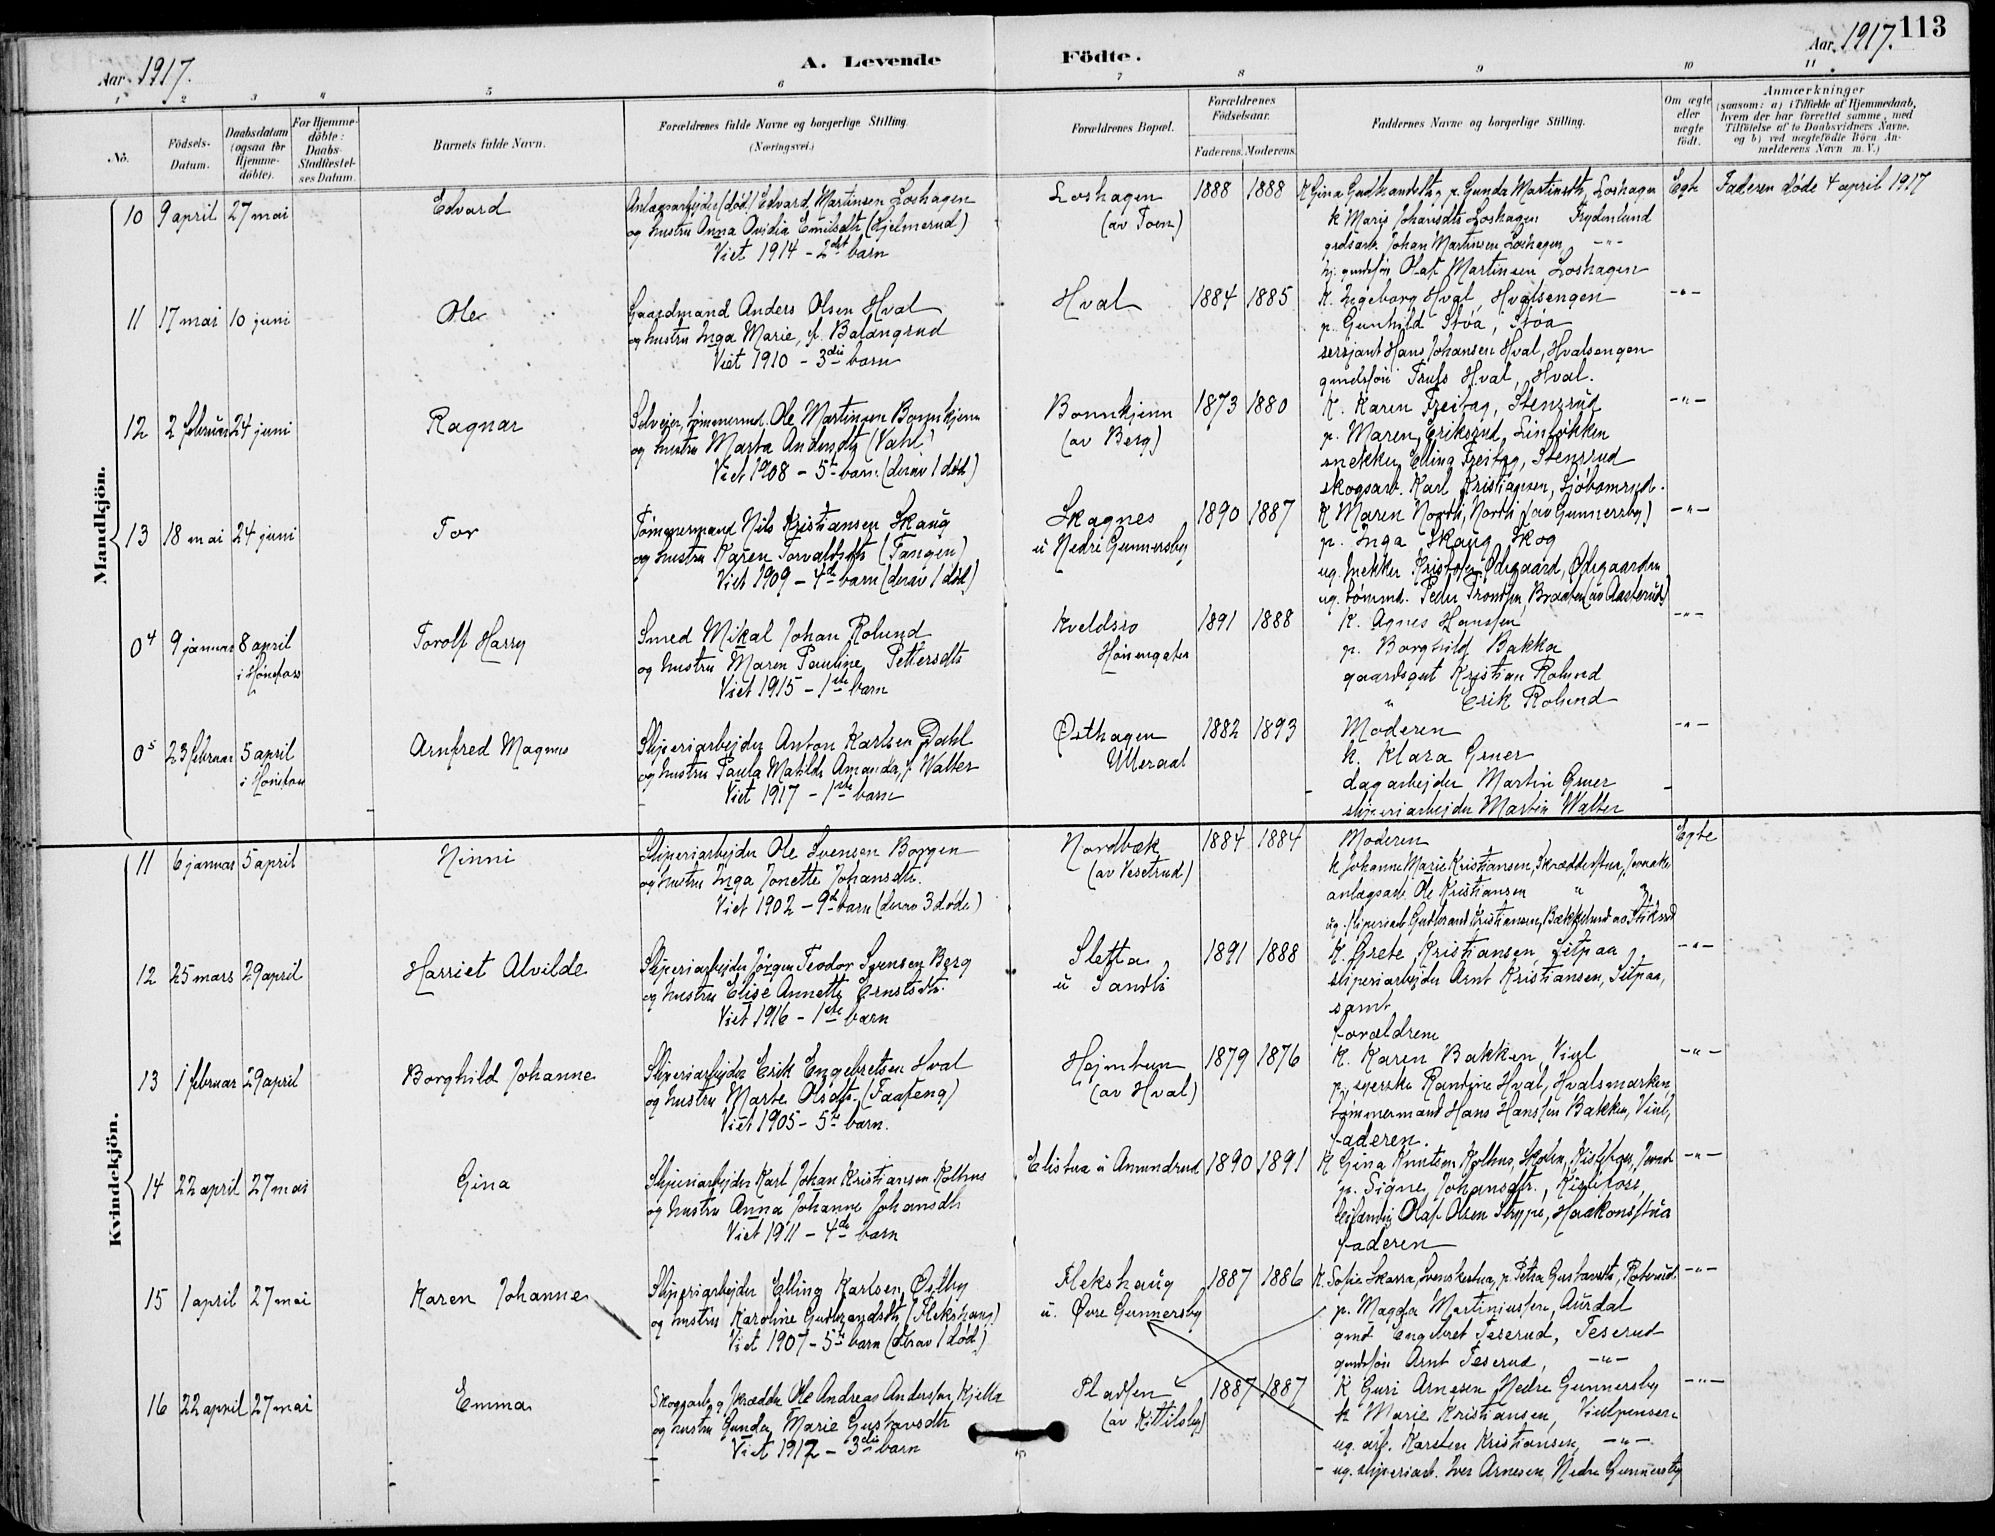 Aar 1917. A. Levende Födte. Aar 1917. 113
1 2 3 4 5 6 7 8 9 10 11
No.
Födsels-Datum.
Daabsdatum (ogsaa for Hjemme-döbte).
For Hjemme-döbte: Daabs-Stadfæstel-ses Datum.
Barnets fulde Navn.
Forældrenes fulde Navne og borgerlige Stilling.
(Næringsvei.)
Forældrenes Bopæl.
Forældrenes Födselsaar.
Faderens. Moderens.
Faddernes Navne og borgerlige Stilling.
Om ægte eller uægte födt.
Anmærkninger
(saasom: a) i Tilfælde af Hjemmedaab, hvem der har forrettet samme, med Tilföielse af to Daabsvidners Navne, og b) ved uægtefödte Börn Anmelderens Navn m. V.)
Mandkjön.
10 9 april 27 mai Edvard
Anlægsarbejder (død) Edvard Martinsen Loshagen
og hustru Anna Ovidia Emilsdtr (Hjelmerud)
Viet 1914 - 2det barn
Loshagen
(av Toen)
1888 1888
K Gina Gudbrandsdtr, p. Gunda Martinsdtr, Loshagen
k Marie Johansdtr Loshagen Frydenlund
grdsarb. Johan Martinsen Loshagen -"-
Olaf Martinsen Loshagen
Egte Faderen døde 4 april 1917
11 17 mai 10 juni Ole
Gaardmand Anders Olsen Hval
og hustru Inga Marie, f. Balangrud
Viet 1910 - 3die barn
Hval 1884 1885
K. Ingeborg Hval, Hvalsengen
p. Gunhild Støa, Støa
sersjant Hans Johansen Hval, Hvalsengen
gmdsføn Truls Hval, Hval.
-"-
12 2 februar 24 juni Ragnar
Selveier, tømmermd. Ole Martinsen Bonnkjenn
og hustru Marta Andersdtr (Vahl)
Viet 1908 - 5te barn (derav 1 død)
Bonnkjenn
(av Berg)
1873 1880
K. Karen Freitag, Stensrud
p. Maren Eriksrud, Linløkken
snekker Elling Freitag, Stensrud
skogsarb. Karl Kristiansen, Sjøbomrud.
-"-
13 18 mai 24 juni Tor
Tømmermand Nils Kristiansen Skaug
og hustru Karen Torvaldsdtr (Tangen)
Viet 1909 - 4de barn (derav 1 død)
Skagnes
u Nedre Gunnersby
1890 1887
K Maren Nordli, Nordli (av Gunnersby)
p. Inga Skaug, Skog
ug. snekker Kristofer Ødegaard, Ødegaarden
ug. tømmd. Peder Trondsen, Braaten (av Aasterud)
-"-
04 9 januar 8 april i Hønefoss Torolf Harry
Smed Mikal Johan Rolund
og hustru Maren Pauline Pettersdtr
Viet 1915 - 1ste barn
Kveldsro
Hønengaten
1891 1888
K. Agnes Hanssen
p. Borghild Bakka
gaardsgut Kristian Rolund
" Erik Rolund
-"-
05 23 februar 5 april i Hønefoss Arnfred Magnus
Sliperiarbejder Anton Karlsen Dahl
og hustru Paula Matilde Amanda, f. Walter
Viet 1917 - 1ste barn
Østhagen
Ulleraal
1882 1893
Moderen
k. Klara Gruer
dagarbejder Martin Gruer
sliperiarbejder Martin Walter
-"-
Kvindekjön.
11 6 januar 5 april Ninni
Sliperiarbejder Ole Svensen Boggen
og hustru Inga Jonette Johansdtr.
Viet 1902 - 9de barn (derav 3 døde)
Nordbæk
(av Vesetrud)
1884 1884
Moderen
k Johanne Marie Kristiansen, Skrædderstua, Jevnaker
anlægsarb. Ole Kristiansen " "
ug. sliperiarb. Gudbrand Kristiansen, Bækkelund
Egte
12 25 mars 29 april Harriet Alvilde
Sliperiarbejder Jørgen Teodor Svensen Berg
og hustru Elise Annette Ernstsdtr.
Viet 1916 - 1ste barn
Sletta
u Sandli
1891 1888
K. Grete Kristiansen, Sitpaa
sliperiarbejder Arnt Kristiansen, Sitpaa,
samt
forældrene
-"-
13 1 februar 29 april Borghild Johanne
Sliperiarbejder Erik Engebretsen Hval
og hustru Marte Olsdtr. (Faafeng)
Viet 1905 - 5te barn.
Hejmtun
(av Hval)
1879 1876
K. Karen Bakken, Viul
p. syerske Rantine Hval, Hvalsmarken,
tømmermand Hans Hanssen Bakken, Viul,
faderen.
-"-
14 22 april 27 mai Gina
Sliperiarbejder Karl Johan Kristiansen Kolhus
og hustru Anna Johanne Johansdtr
Viet 1911 - 4de barn
Elistua u Amundrud 1890 1891
K Gina Knutsen Kolhus, Skolen, Jevnak
p. Signe Johansdtr.,
Olaf Olsen Strype, Haakonsstua
faderen
-"-
15 1 april 27 mai Karen Johanne
Sliperiarbejder Elling Karlsen Østby
og hustru Karoline Gudbrandsdtr (Flekshaug)
Viet 1907 - 5te barn (derav 1 død)
Flekshaug
u. Øvre Gunnersby
1887 1886
K. Sofie Skarra, Svenskestua, p. Petra Gustavsdtr, Roterud.
p. Magda Martiniussen, Aurdal
gmd Engebret Teserud, Teserud
gmdsføn Arnt Teserud, -"-
-"-
16 22 april 27 mai Emma
Skogsarb. og skrædder Ole Andreas Andersen Kjelle
og hustru Gunda Marie Gustavsdtr
Viet 1912 - 3die barn
Pladsen
(av Kittilsby)
1887 1887
K Guri Arnesen Nedre Gunnersby
k Marie Kristiansen, Viulpensen
ug. arb. Karsten Kristiansen, -"-
ug. sliperiarb. Iver Arnesen, Nedre Gunnersby
-"-